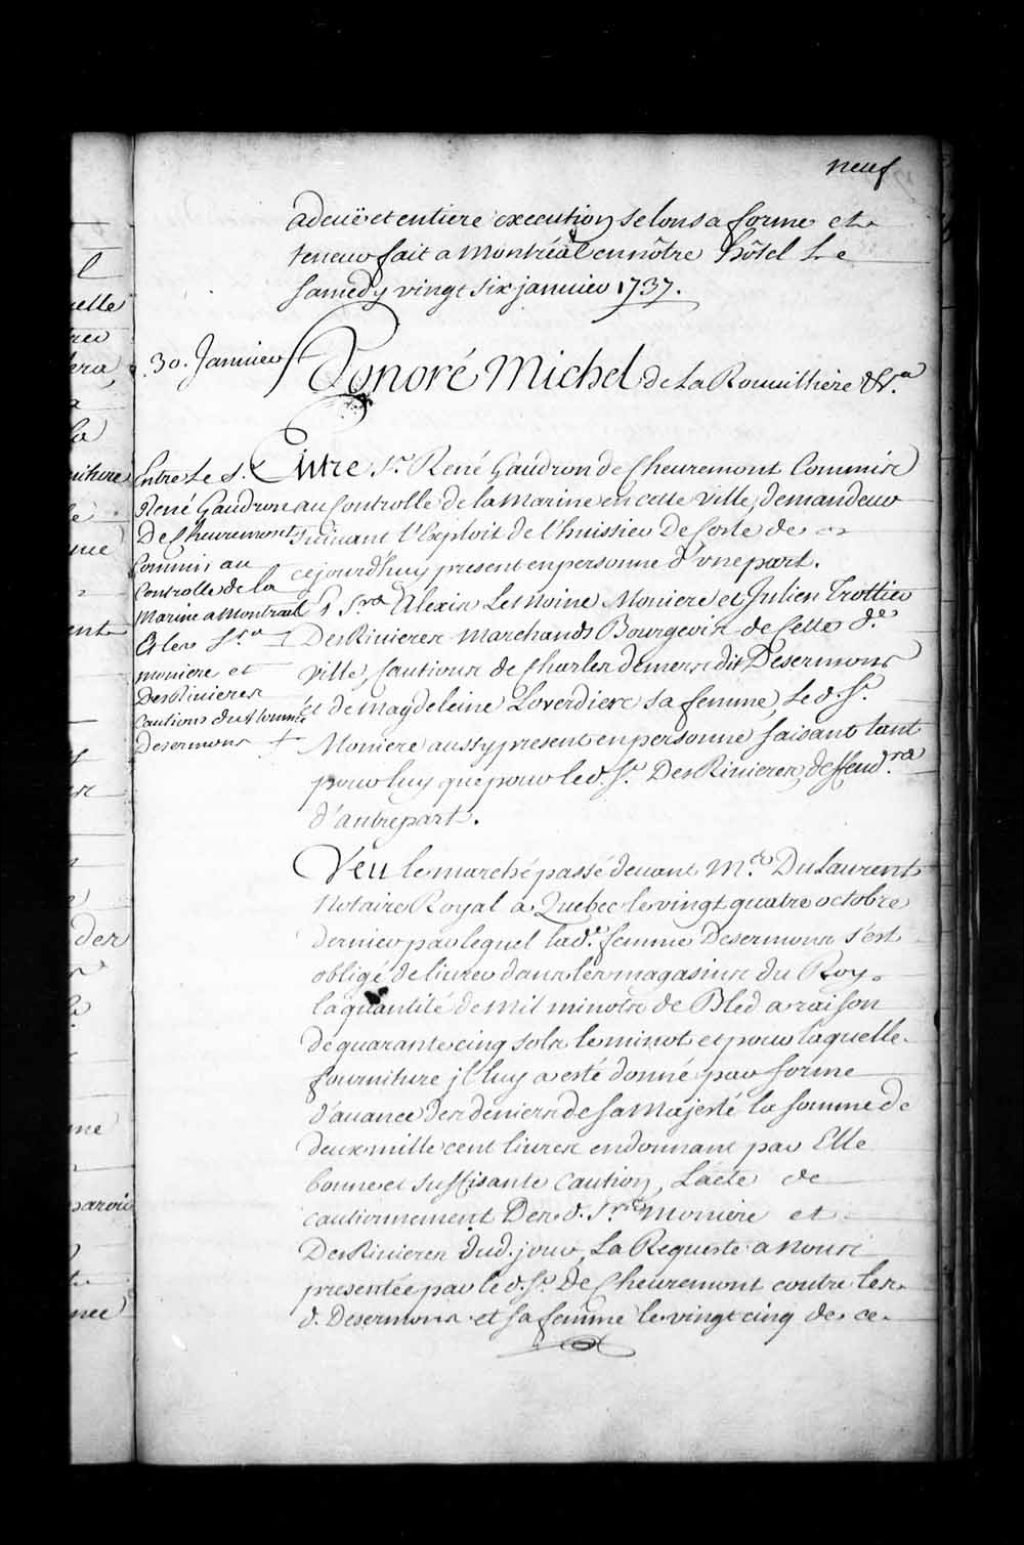 neuf
a deuë et entiere execution selon sa forme et
teneur fait a Montréal en nôtre hôtel Le
samedy vingt six janvier 1737.
30. Janvier
Honoré Michel de La Rouuilliere &c.a
Entre Le S.r
René Gaudron
De Cheuremont
Commis au
Controlle de la
Marine a Montreal
Et les Srs
moniere et
Desriuieres
cautions du Nommé
Desermons
Entre S.r René Gaudron de Cheuremont Commis
au Controlle de la Marine en cette ville, demandeur
suiuant l'Exploit de l'huissier De Coste de
cejourdhuy present en personne d'vne part.
Et Srs Alexis LeMoine Moniere et Julien Trottier
DesRiuieres Marchands Bourgeois de Cette d.e
ville, Cautions de Charles demers dit Desermons
et de Magdeleine Loverdiere sa femme, Le d. S.r
Moniere aussy present en personne faisant tant
pour luy que pour le d. S.r DesRiuieres, deffend.rs
d'autre part.
Veu le marché passé deuant M.e Du Laurent
Notaire Royal a Quebec le vingt quatre octobre
dernier par lequel la d.e femme Desermons s'est
obligé de liurer dans les magasins du Roy
la quantité de mil minots de Bled a raison
de quarante cinq sols le minot et pour laquelle
fourniture jl luy a esté donné par forme
d'auance des deniers de Sa Majesté la somme de
deux mille cent liures en donnant par Elle
bonne et suffisante caution, L'acte de
cautionnement Des d. Srs Moniere et
DesRiuieres dud. jour, La Requeste a Nous
presentée par le d. S.r De Cheuremont contre les
d. Desermons et sa femme le vingt cinq de ce